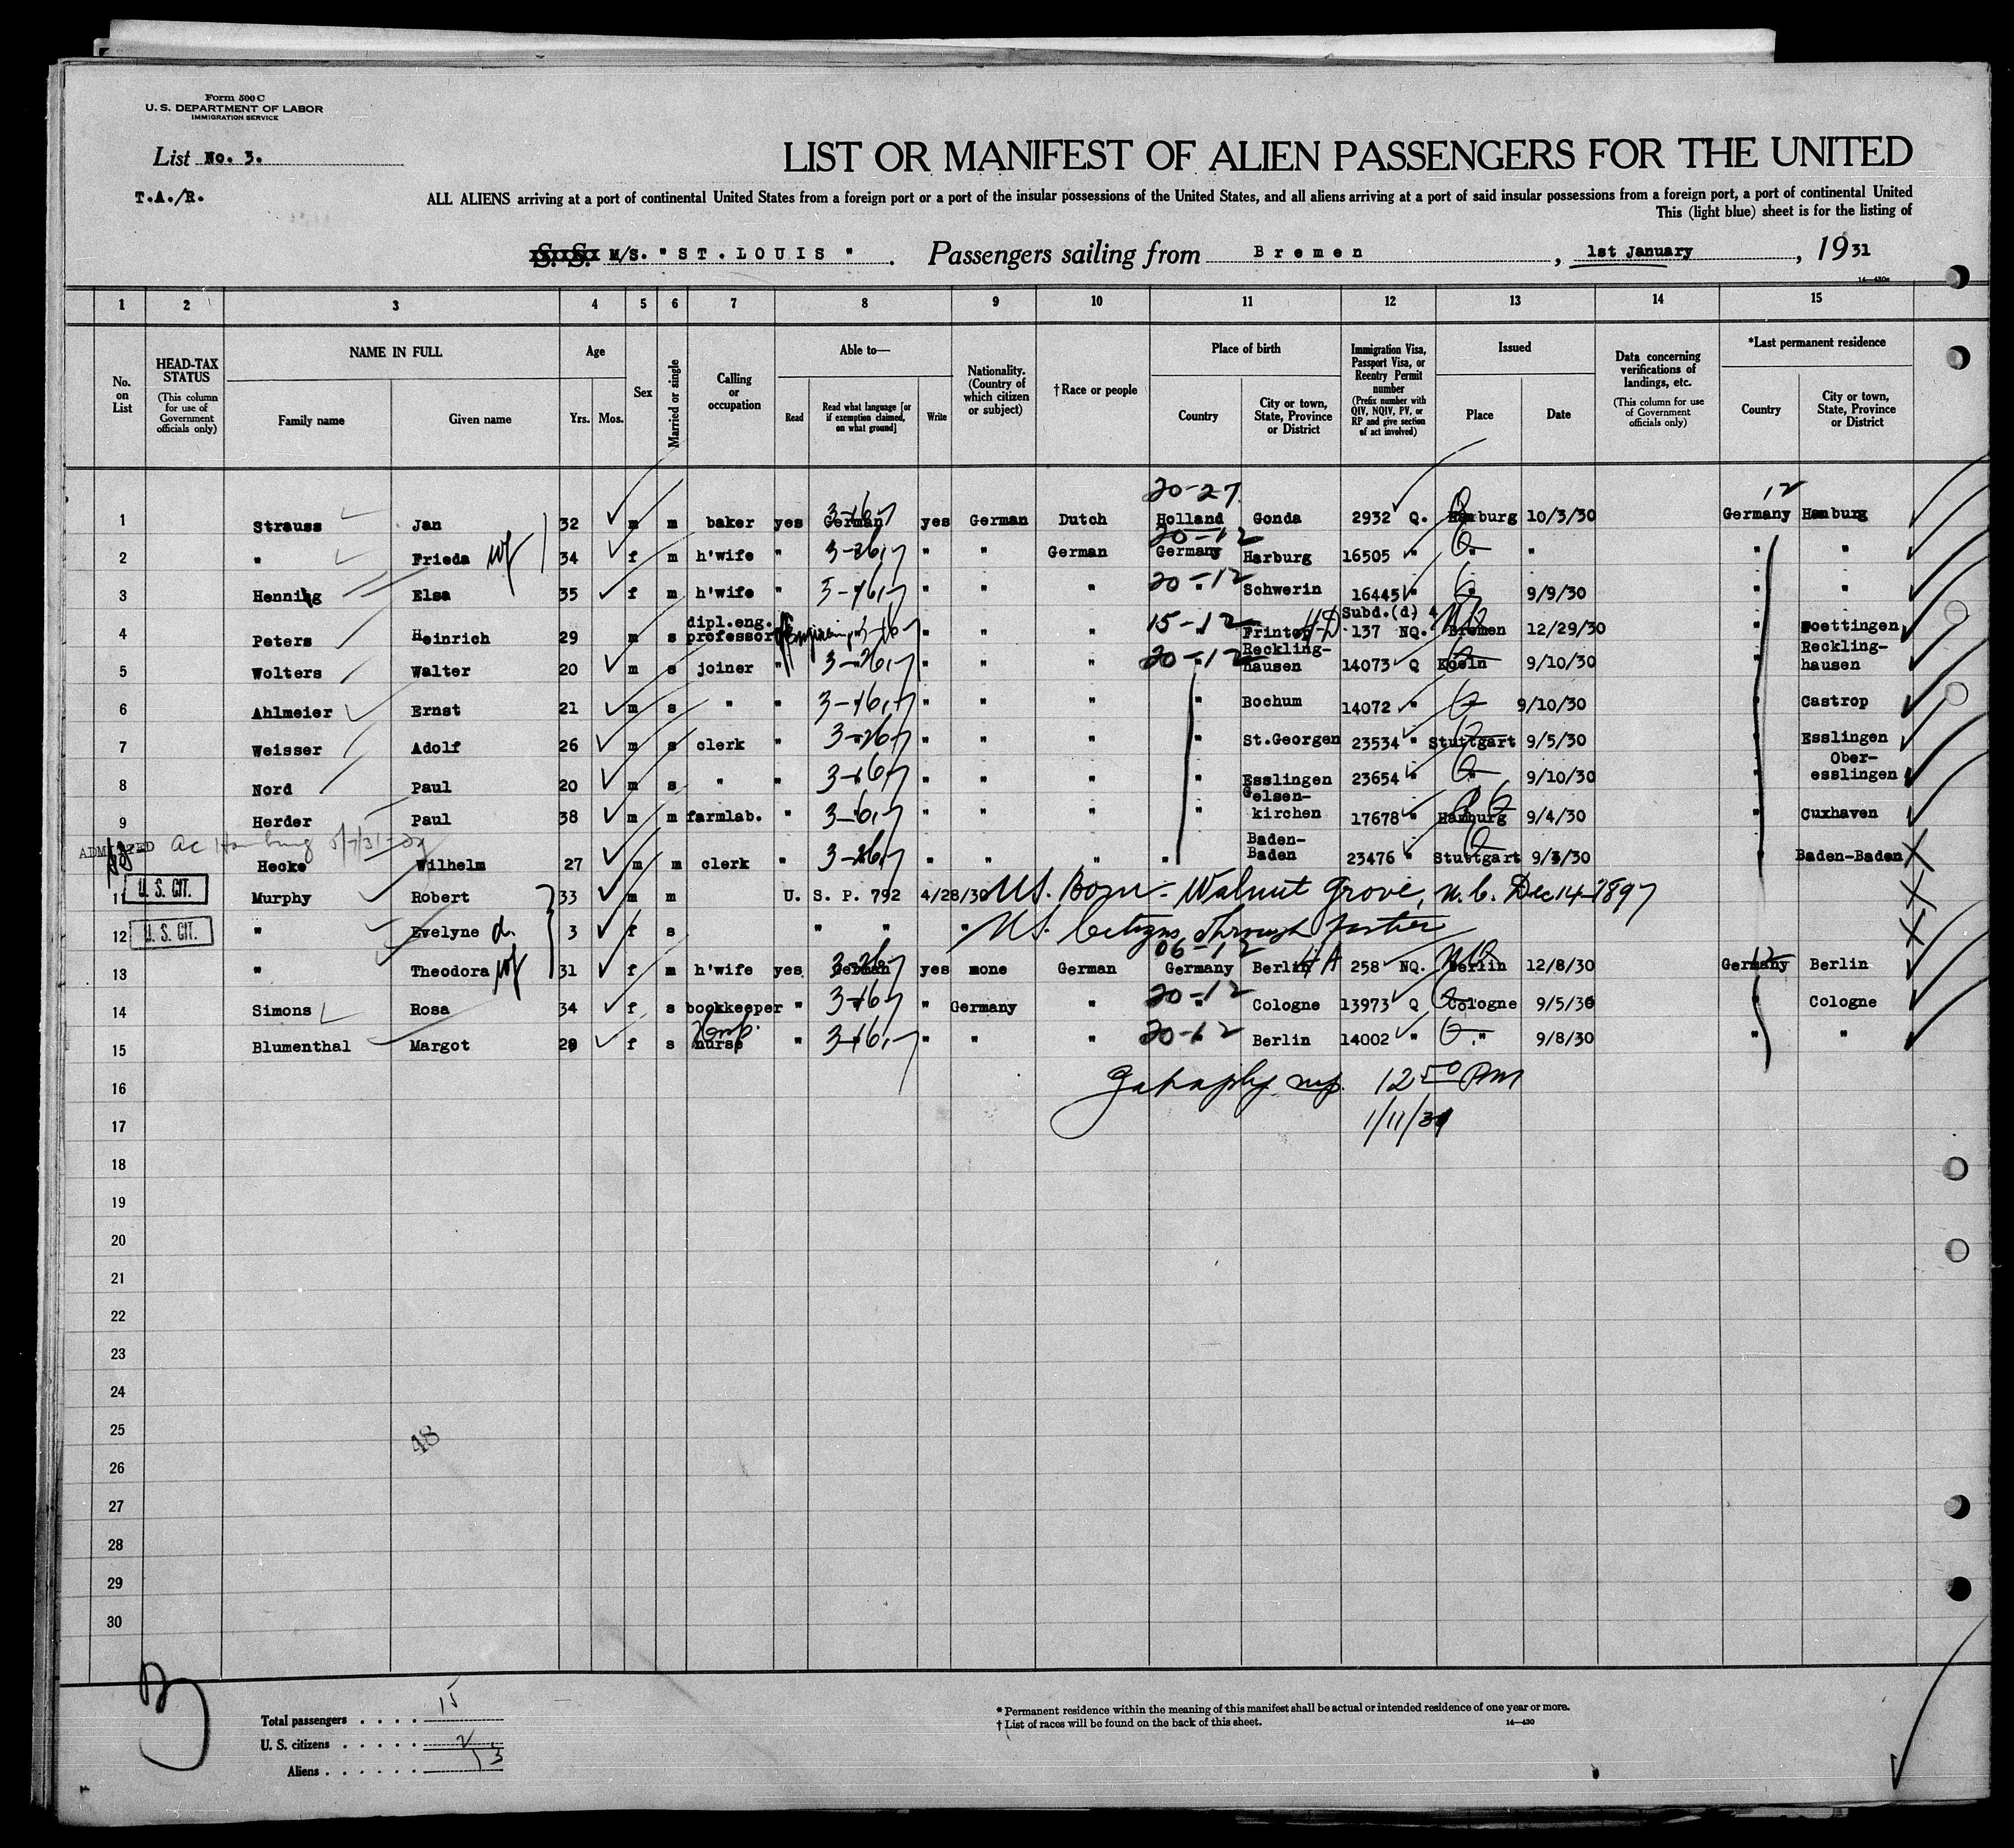 Form 500 C
U. S. DEPARTMENT OF LABOR
IMMIGRATION SERVICE
List No. 3.
T.A./R.
LIST OR MANIFEST OF ALIEN PASSENGERS FOR THE UNITED
ALL ALIENS arriving at a port of continental United States from a foreign port or a port of the insular possessions of the United States, and all aliens arriving at a port of said insular possessions from a foreign port, a port of continental United
This (light blue) sheet is for the listing of
S. S. M/S. "ST. LOUIS". Passengers sailing from Bremen, 1st January, 1931
14—430a
1 2 3 4 5 6 7 8 9 10 11 12 13 14 15
No. on List
HEAD-TAX STATUS (This column for use of Government officials only)
NAME IN FULL Family name Given name
Age Yrs. Mos.
Sex
Married or single
Calling or occupation
Able to— Read Read what language [or if exemption claimed, on what ground] Write
Nationality. (Country of which citizen or subject)
† Race or people
Place of birth Country City or town, State, Province or District
Immigration Visa, Passport Visa, or Reentry Permit number (Prefix number with QIV, NQIV, PV, or RP and give section of act involved)
Issued Place Date
Data concerning verifications of landings, etc. (This column for use of Government officials only)
*Last permanent residence Country City or town, State, Province or District
20-27 12
1 Strauss Jan 32 m m baker yes German yes German Dutch Holland Gonda 2932 Q. Hamburg 10/3/30 Germany Hamburg
20-12
2 " Frieda wf 34 f m h'wife " " " " German Germany Harburg 16505 " " " " "
3 Henning Elsa 35 f m h'wife " " " " " 20-12 " Schwerin 16445 " " 9/9/30 " "
4 Peters Heinrich 29 m s dipl.eng. professor " " " " " 15-12 " Frintop Subd.(d) 4 137 NQ. Bremen 12/29/30 " Goettingen
5 Wolters Walter 20 m s joiner " " " " " 20-12 " Recklinghausen 14073 Q Koeln 9/10/30 " Recklinghausen
6 Ahlmeier Ernst 21 m s " " " " " " " Bochum 14072 " " 9/10/30 " Castrop
7 Weisser Adolf 26 m s clerk " " " " " " St.Georgen 23534 " Stuttgart 9/5/30 " Esslingen
8 Nord Paul 20 m s " " " " " " " Esslingen 23654 " " 9/10/30 " Ober-esslingen
9 Herder Paul 38 m m farmlab. " " " " " " Gelsenkirchen 17678 " Hamburg 9/4/30 " Cuxhaven
ADMITTED
Hecke Wilhelm 27 m m clerk " " " " " " Baden-Baden 23476 " Stuttgart 9/3/30 " Baden-Baden
11 U. S. CIT. Murphy Robert 33 m m U. S. P. 792 4/28/30 US. Born - Walnut Grove, N.C. Dec 14-1897
12 U. S. CIT. " Evelyne d. 3 f s " " " US. Citizen through father
06-12
13 " Theodora wf 31 f m h'wife yes German yes none German Germany Berlin 258 NQ. Berlin 12/8/30 Germany Berlin
14 Simons Rosa 34 f s bookkeeper " " " Germany " 20-12 " Cologne 13973 Q Cologne 9/5/30 " Cologne
15 Blumenthal Margot 28 f s nurse " " " " " 20-12 " Berlin 14002 " " 9/8/30 " "
16 12 50 PM
17 1/11/31
18
19
20
21
22
23
24
25
48
26
27
28
29
30
Total passengers . . . . 15
U. S. citizens . . . . . 2
Aliens . . . . . . 13
* Permanent residence within the meaning of this manifest shall be actual or intended residence of one year or more.
† List of races will be found on the back of this sheet. 14—430